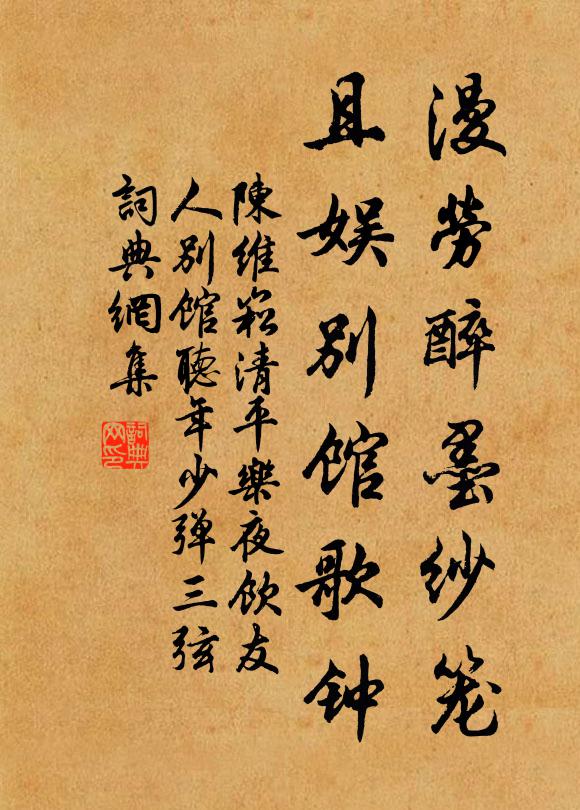 漫劳醉墨纱笼
且娱别馆歌钟
陳維崧清平樂夜飲友
人别館聽年少弹三弦
詞典網集
詞典
网印